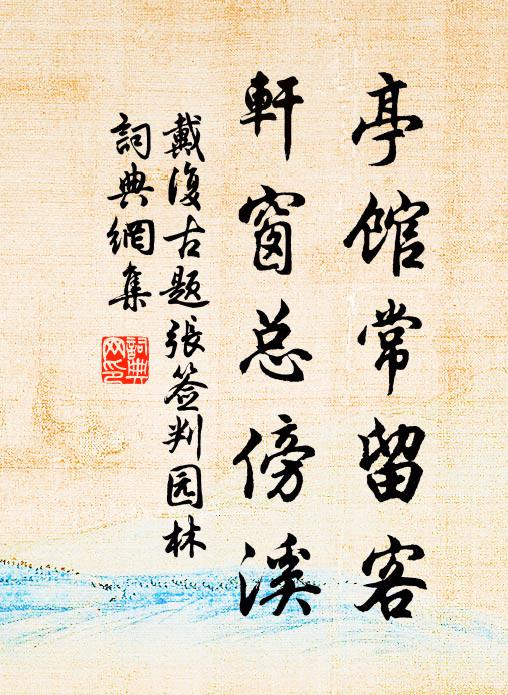 亭馆常留客
軒窗总傍溪
戴復古题張签判园林
詞典網集
詞典
网印